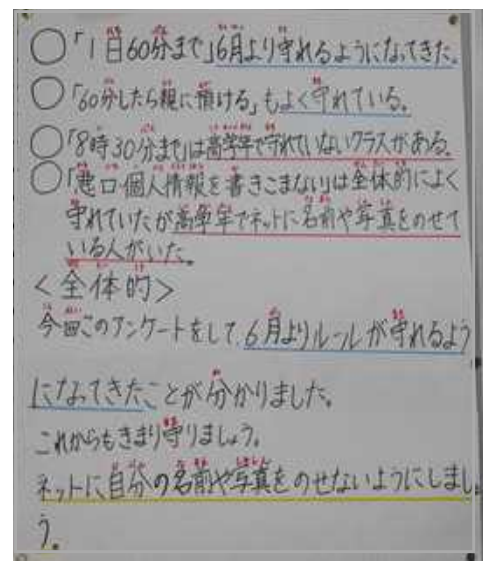 ○「1日60分まで」6月より守れるようになってきた。
○「60分したら親に預ける」もよく守れている。
○「8時30分まで」は高学年で守れていないクラスがある。
○「悪口・個人情報を書きこまない」は全体的によく
守れていたが高学年でネットに名前や写真をのせて
いる人がいた。
<全体的>
今回このアンケートをして、6月よりルールが守れるよう
になってきたことが分かりました。
これからもきまり守りましょう。
ネットに自分の名前や写真をのせないようにしまし
う。